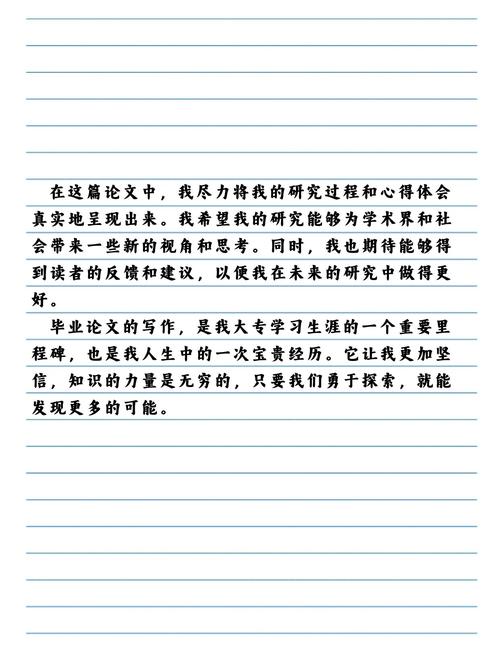 在这篇论文中，我尽力将我的研究过程和心得体会
真实地呈现出来。我希望我的研究能够为学术界和社
会带来一些新的视角和思考。同时，我也期待能够得
到读者的反馈和建议，以便我在未来的研究中做得更
好。
毕业论文的写作，是我大专学习生涯的一个重要里
程碑，也是我人生中的一次宝贵经历。它让我更加坚
信，知识的力量是无穷的，只要我们勇于探索，就能
发现更多的可能。